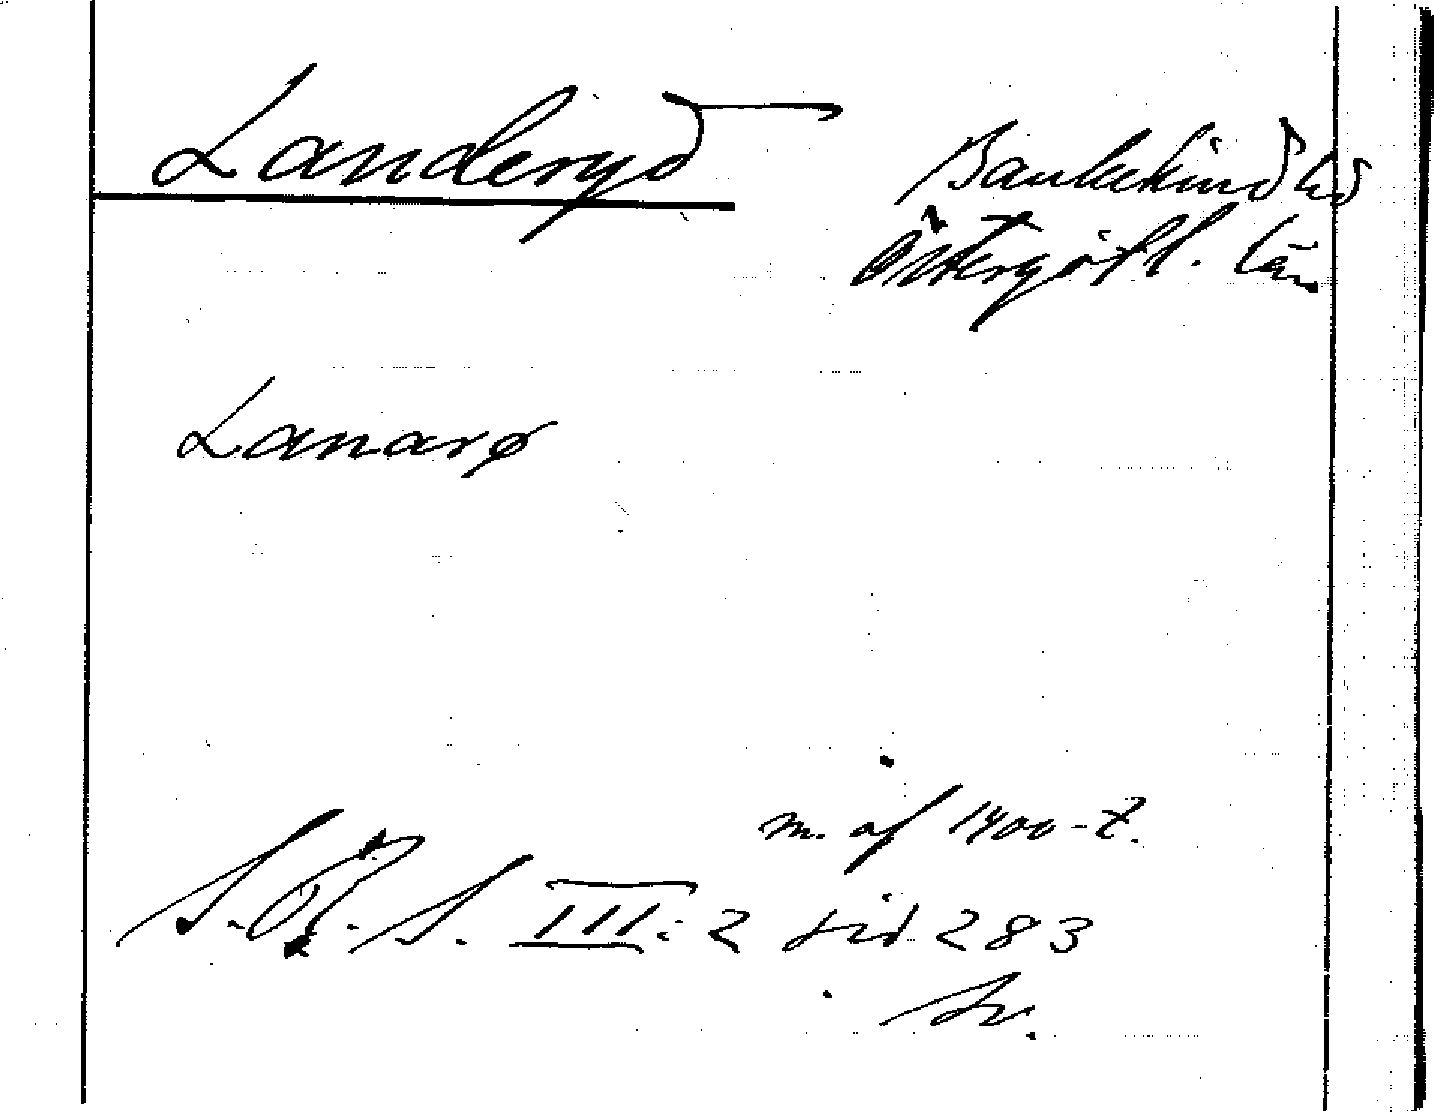 Landeryd
Bankekinds hd
Östergötl. län
Lanarø
m. af 1400-t.
S.R.S. III:2 sid 283